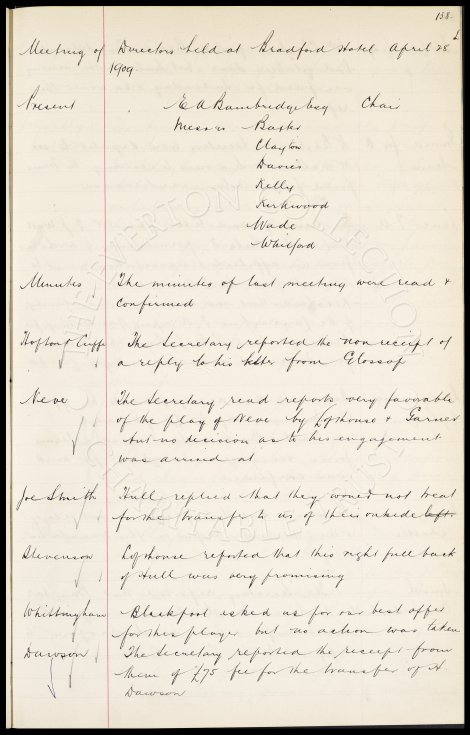 158.
Meeting of Directors held at Bradford Hotel April 28
1909.
Present E A Bainbridge Esq Chair
Messrs Baxter
Clayton
Davies
Kelly
Kirkwood
Wade
Whitford
Minutes The minutes of last meeting were read &
confirmed
Hofton & Cuffe The Secretary reported the non receipt of
a reply to his letter from Glossop
Neve The Secretary read reports very favorable
of the play of Neve by Lofthouse & Garner
but no decision as to his engagement
was arrived at
Joe Smith Hull replied that they would not treat
for the transfer to us of their outside left.
Stevenson Lofthouse reported that this right full back
of Hull was very promising
Whittingham Blackpool asked us for our best offer
for this player but no action was taken
Dawson The Secretary reported the receipt from
them of £75 fee for the transfer of H
Dawson
THE EVERTON COLLECTION
CHARITABLE TRUST